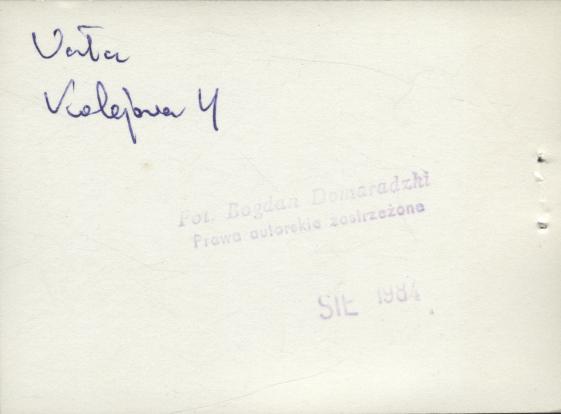 Kolejowa 4
Fot. Bogdan Domaradzki
Prawa autorskie zastrzeżone
SIE 1984